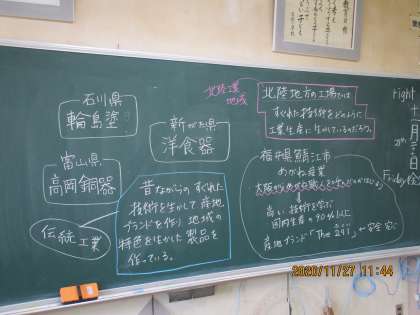 石川県
輪島塗
富山県
高岡銅器
伝統工業
新がた県
洋食器
昔ながらのすぐれた
技術を生かして産地
ブランドを作り地域の
特色を生かした製品を
作っている。
北陸工業
地域
北陸地方の工場では
すぐれた技術をどのように
工業生産に生かしているのだろう。
福井県鯖江市
めがね産業
高い技術を学ぶ
国内生産の90%以上
産地ブランド「The 291」
right
十一月
Friday
2020/11/27 11:44